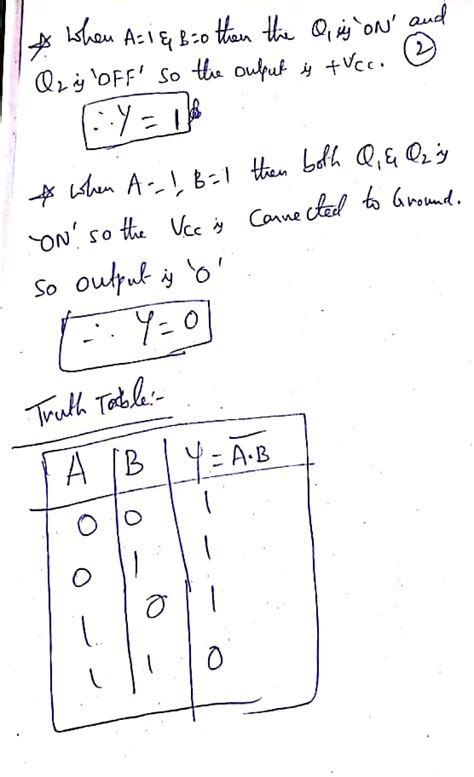 * When A=1 & B=0 then the Q₁ is 'ON' and
Q₂ is 'OFF' so the output is +Vcc. ②
∴ Y = 1
* When A=1, B=1 then both Q₁ & Q₂ is
'ON' so the Vcc is Connected to Ground.
So output is '0'
∴ Y=0
Truth Table:-
A B Y = \overline{A·B}
0 0 1
0 1 1
1 0 1
1 1 0